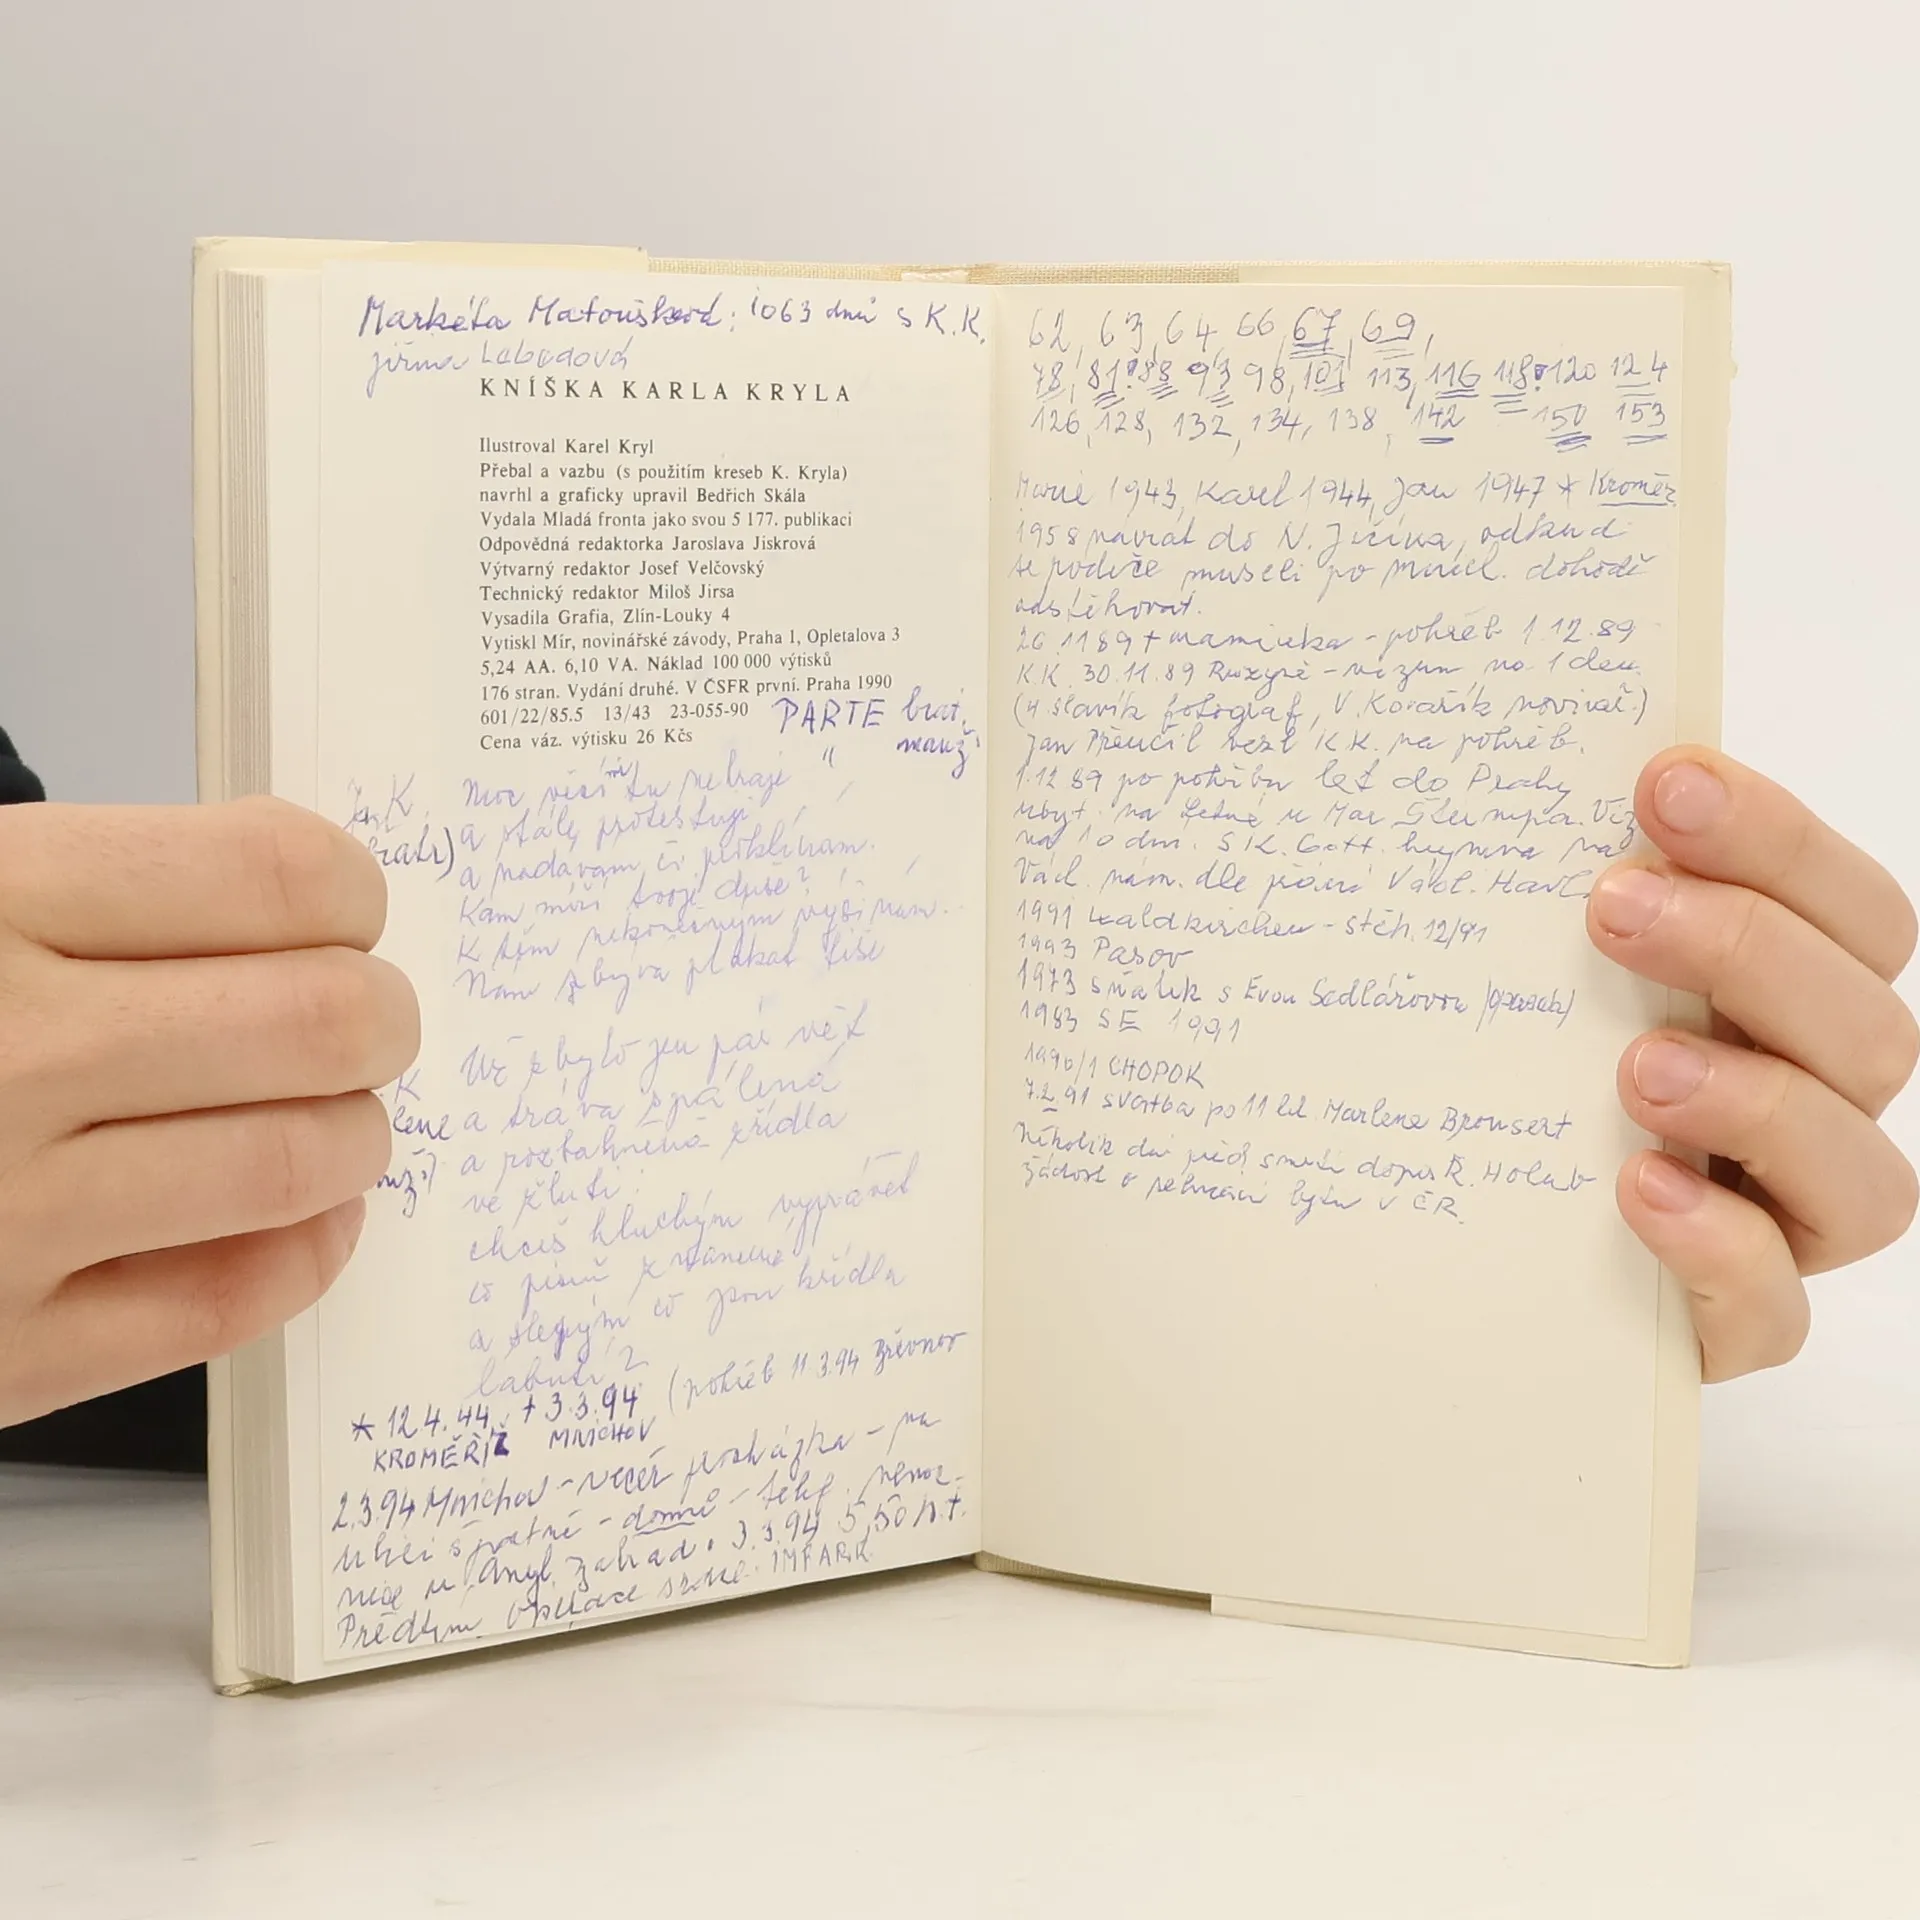 Markéta Matoušková: 1063 dnů s K.K.
Jiřina Lebedová
KNÍŠKA KARLA KRYLA
Ilustroval Karel Kryl
Přebal a vazbu (s použitím kreseb K. Kryla)
navrhl a graficky upravil Bedřich Skála
Vydala Mladá fronta jako svou 5 177. publikaci
Odpovědná redaktorka Jaroslava Jiskrová
Výtvarný redaktor Josef Velčovský
Technický redaktor Miloš Jirsa
Vysadila Grafia, Zlín-Louky 4
Vytiskl Mír, novinářské závody, Praha 1, Opletalova 3
5,24 AA. 6,10 VA. Náklad 100 000 výtisků
176 stran. Vydání druhé. V ČSFR první. Praha 1990
601/22/85.5 13/43 23-055-90
Cena váz. výtisku 26 Kčs
PARTE brat.
" manž.
Jan K.
bratr)
Moc věcí tu nehraje
a stále protestuji
a nadávám či proklínám.
Kam míří tvoje duše?
K těm nekonečným výšinám..
Nám zbývá plakat tiše
Už zbylo jen pár vět
a tráva spálená
a roztahnená zřídla
ve žluti:
chceš hluchým vyprávět
co písní znamená
a slepým co jsou křídla
labutí?
* 12.4.44 + 3.3.94 (pohřeb 11.3.94 Břevnov
KROMĚŘÍŽ MNICHOV
2.3.94 Mnichov - večer procházka - na
ulici špatně - domů - telef. nemoc-
nice u Angl. zahrad. 3.3.94 5,50 h. †.
Předtím operace srdce. INFARK.
62, 63, 64 66, 67, 69,
78, 81? 88 93 98, 101 113, 116 118? 120 124
126, 128, 132, 134, 138, 142 150 153
Marie 1943, Karel 1944, Jan 1947 * Kroměř.
1958 návrat do N. Jičína, odkud
se rodiče museli po mnich. dohodě
odstěhovat.
26.11 89 + maminka - pohřeb 1.12.89
K.K. 30.11.89 Ruzyně - vízum na 1 den.
fotograf, V. Kovařík novinář.)
Jan Přeučil vezl K.K. na pohřeb.
1.12 89 po pohřbu let do Prahy
ubyt. na Letné u Mar. Štempa. Víz
na 10 dnů. S K. Gott. hymna na
Václ. nám. dle přání Václ. Havla
1991 Waldkirchen - stěh. 12/91
1993 Pasov
1973 sňatek s Evou Sedlářovou
1983 SE 1991
1990/1 CHOPOK
7.2.91 svatba po 11 let. Marlene Bronsert
Několik dní před smrtí dopis R. Holub
žádost o bytu v ČR.